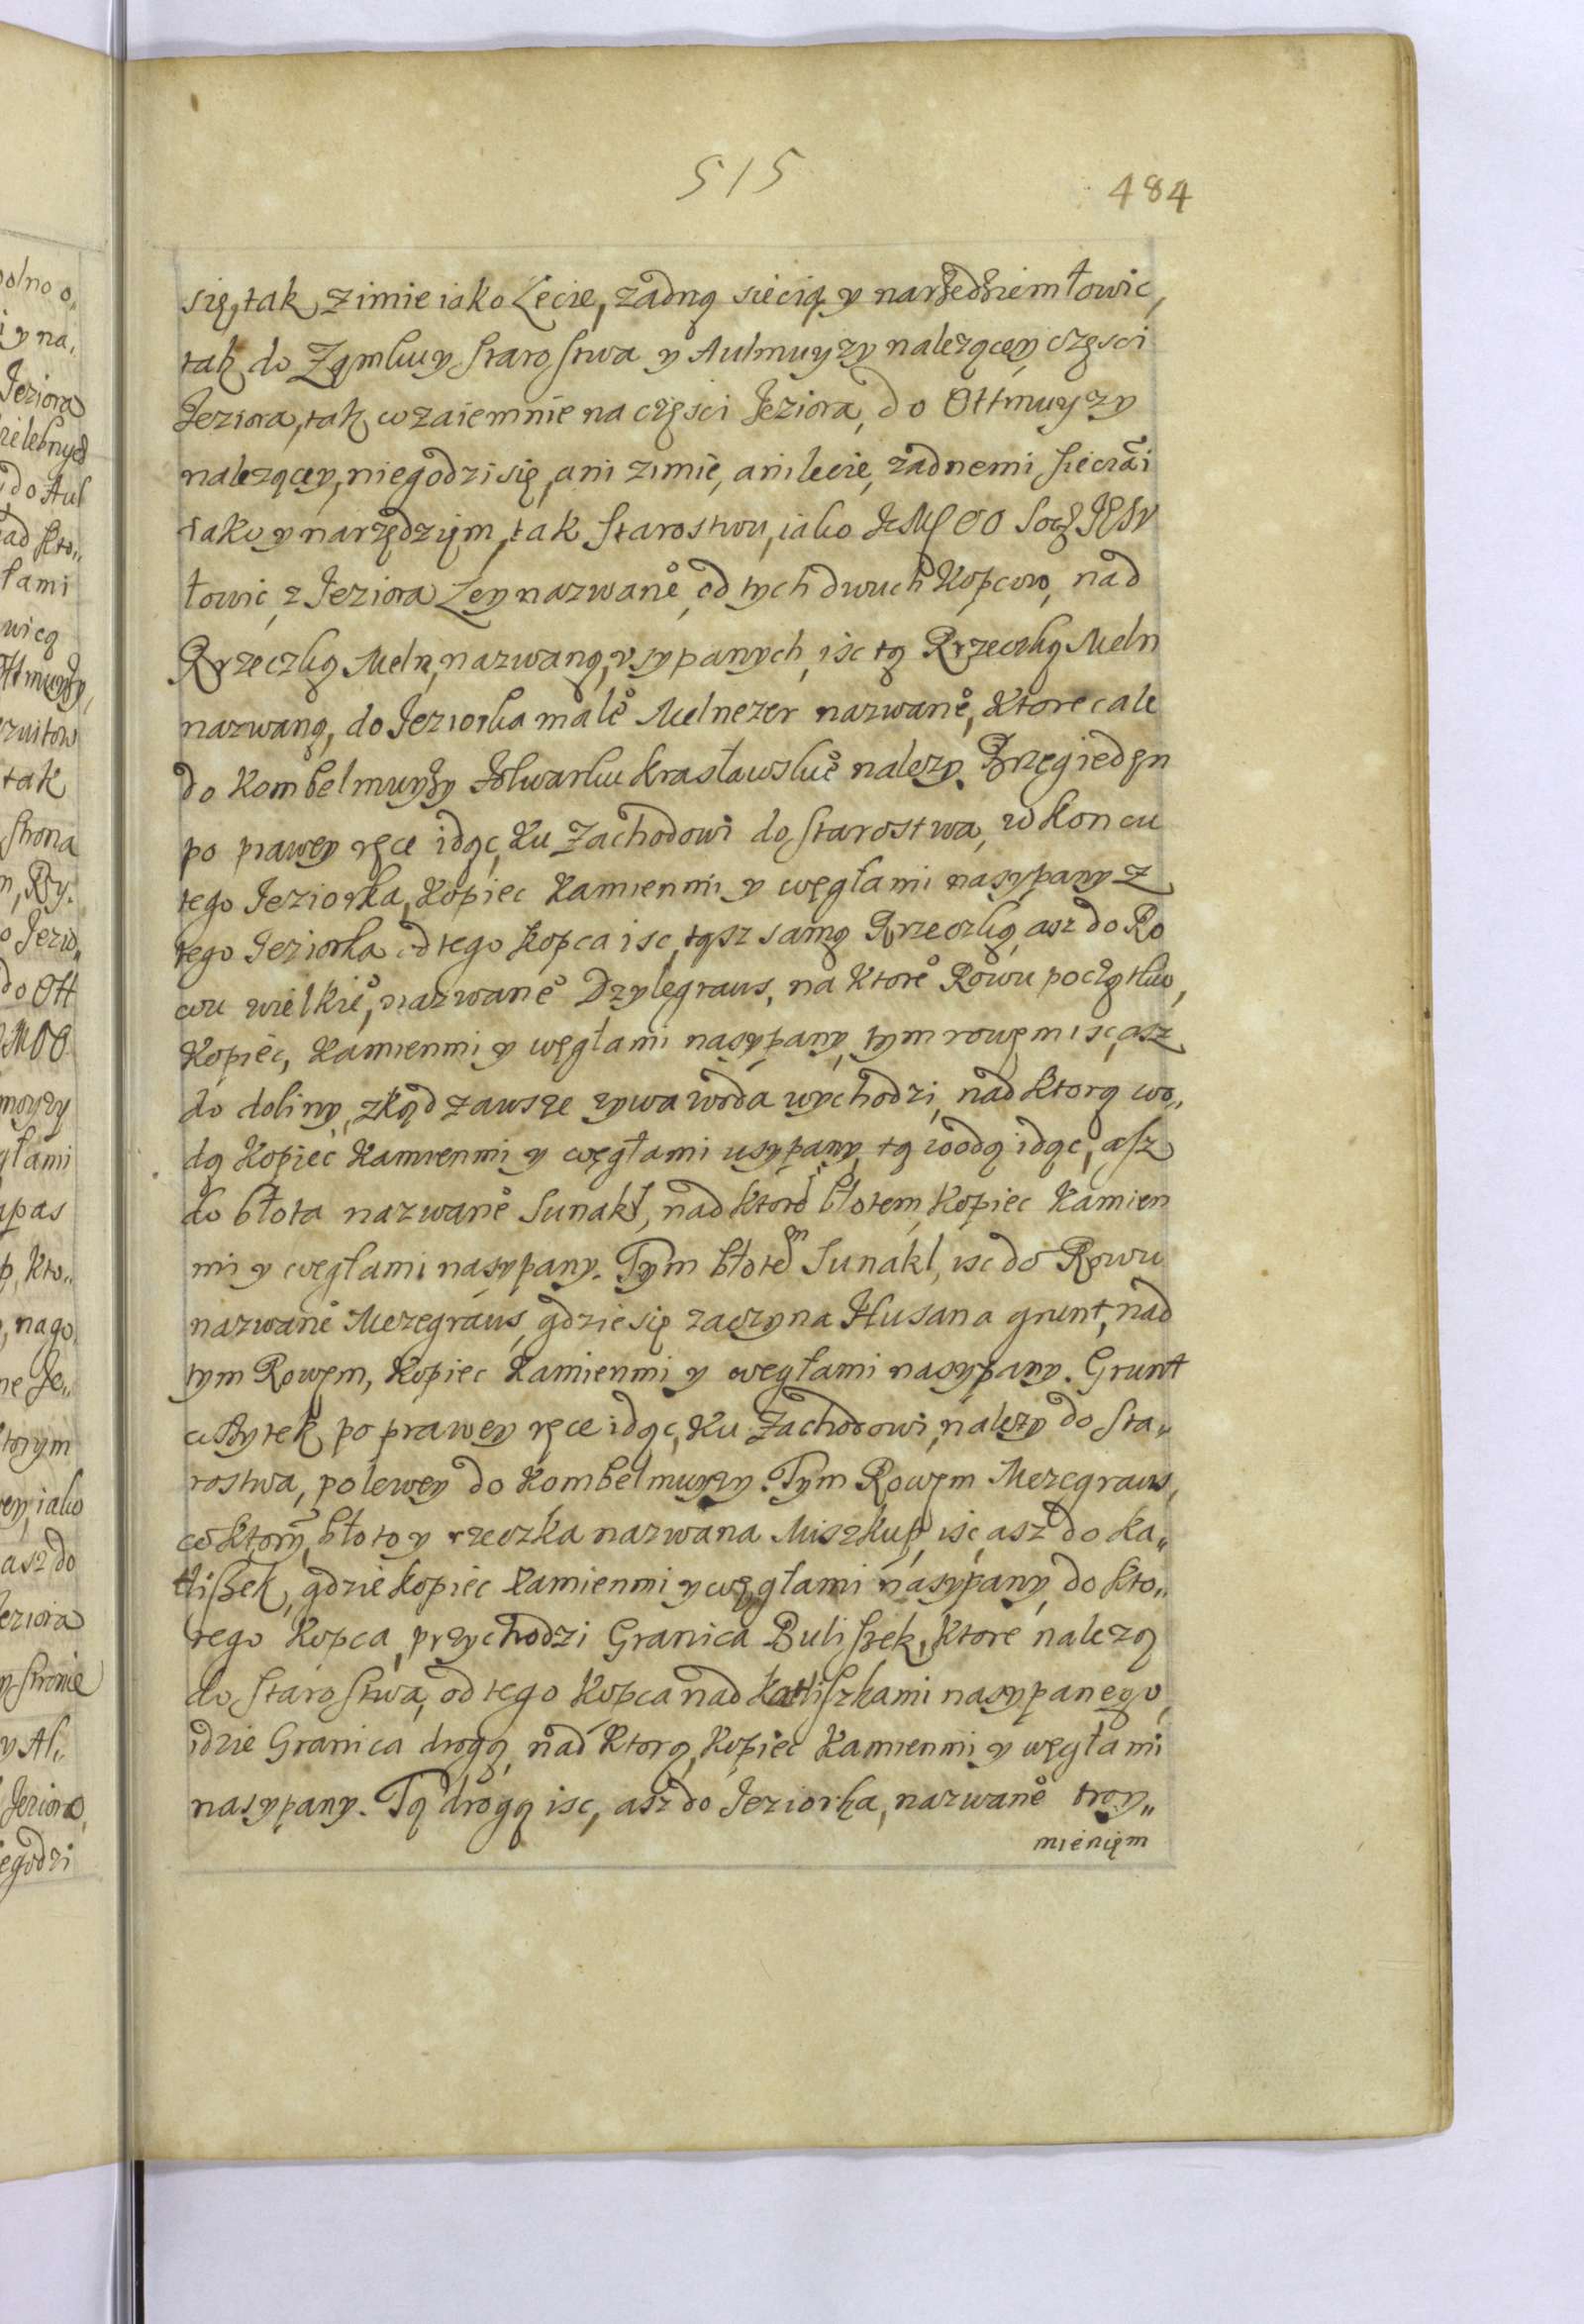 515
484
się, tak zimie iako Lecie, żadną siecią y narzedziem łowic,
tak do Zamkuy Starostwa y Aulmuyzy należącey częsci
Jeziora, tak wzaiemnie na częsci Jeziora, do Ottmuyzy
należącey, niegodzi się, ani zimie, ani lecie, żadnemi sieciãi
iako y narzędzięm, tak Starostwu, iako JcM OO Soc JESV
łowić, z Jeziora Ley nazwane̊, od tych dwuch Kopcow, nad
Rrzeczką Meln, nazwaną, vsypanych, isc tą Rrzeczką Meln
nazwaną, do Jeziorka małe̊ Melnezer nazwane̊, Ktore cale
do Kombelmuyzy folwarku krasławskie̊ należy. Brzeg iedęn
po prawey ręce idąc, Ku Zachodowi do Starostwa, w Koncu
tego Jeziorka, Kopiec Kamienmi y węgłami nasypany z
tego Jeziorka od tego Kopca isc, tąsz samą Rrzeczką, asz do Ro
wu wielkie̊, nazwane̊ Dzylegraws, na Ktore̊ Rowu początku,
Kopiec, Kamienmi y węgłami nasypany, tym rowęm isc, asz
do doliny, zkąd zawsze zywa woda wychodzi, nad Ktorą wo„
dą Kopiec Kamienmi y węgłami usypany, tą wodą idąc, asz
do błota nazwane̊ Sunakl, nad ktore̊ błotem, Kopiec Kamien
mi y węgłami nasypany. Tym błotem Sunakl, isc do Rowu
nazwane̊ Mezegraws, gdzie się zaczyna Husana grunt, nad
tym Rowęm, Kopiec Kamienmi y węgłami nasypany. Grunt
wszytek po prawey ręce idąc, Ku Zachodowi, należy do Sta„
rostwa, po lewey do Kombelmuyzy. Tym Rowęm Mezegraws,
w Ktorỹ, błoto y rzeczka nazwana Miszkup, isc, asz do Ka„
tliszek, gdzie kopiec Kamienmi y węgłami nasypany, do kto„
rego Kopca, przychodzi Granica Buliszek, Ktore należą
do Starostwa, od tego Kopca nad Katliszkami nasypanego,
idzie Granica drogą, nad Ktorą, Kopiec Kamienmi y węgłami
nasypany. Tą drogą isc, asz do Jeziorka, nazwane̊ troy„
mienięm